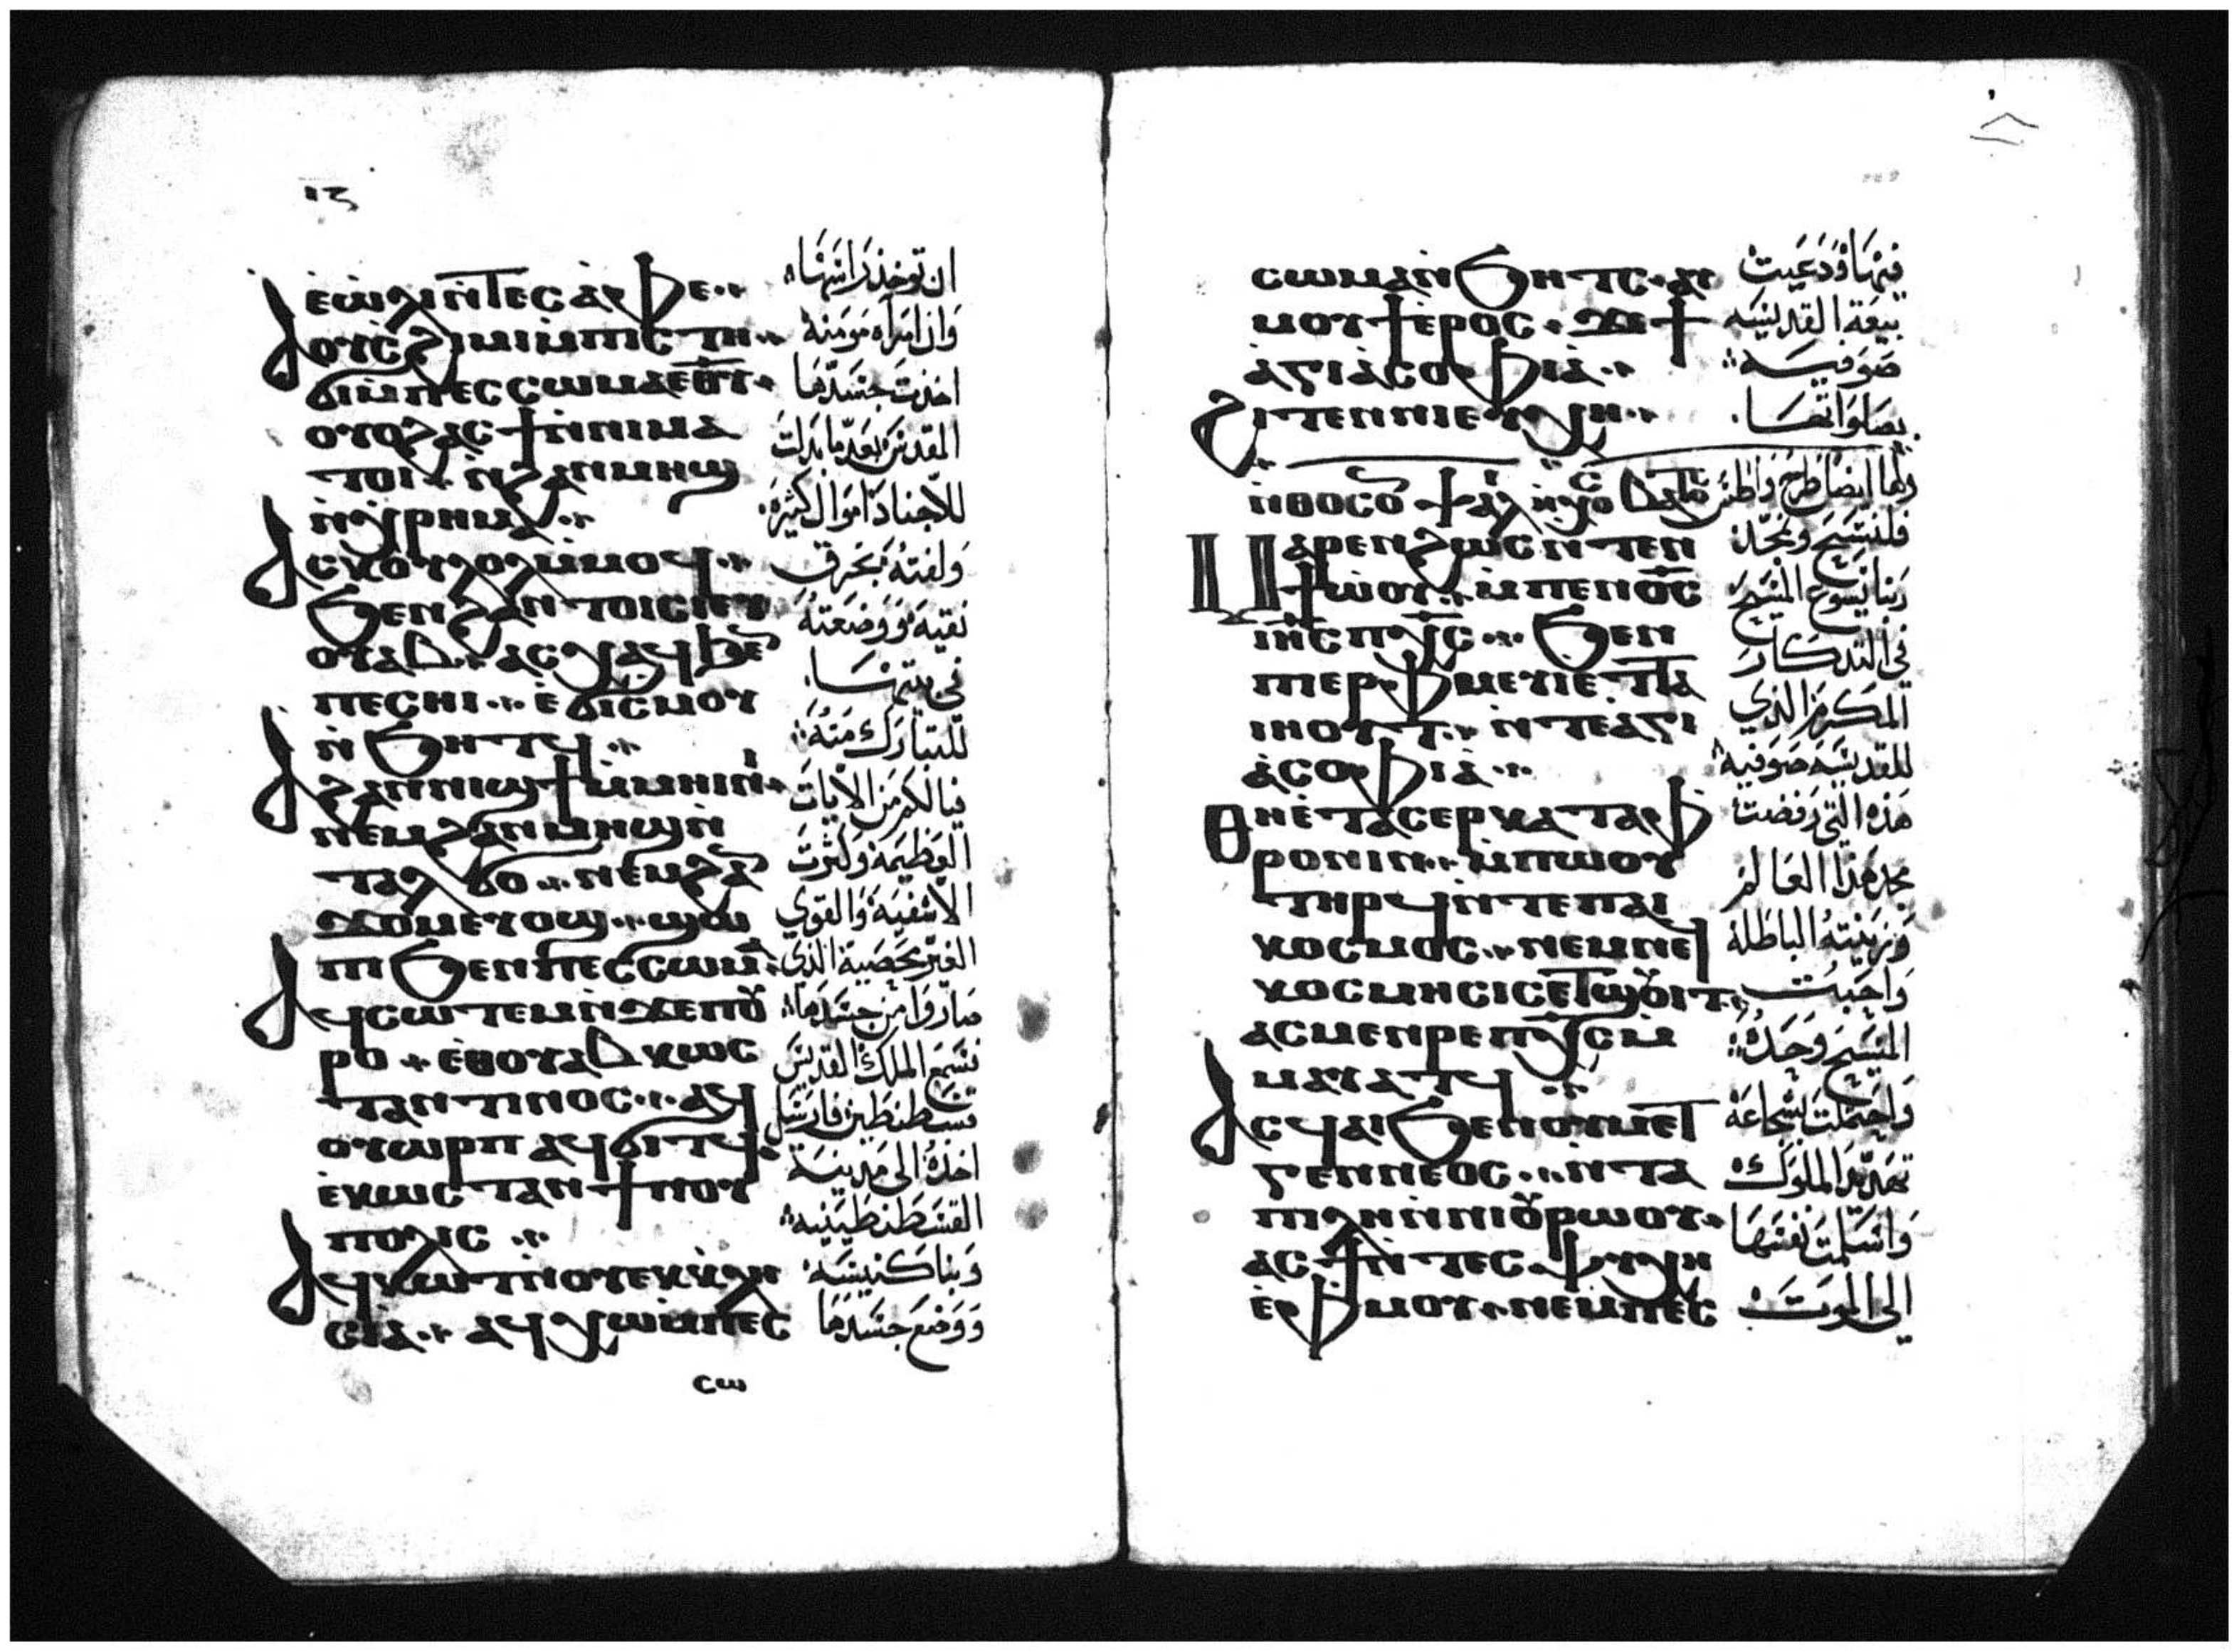 ⲓⲍ
ⲉⲱⲗⲓ ⲛ̀ⲧⲉⲥⲁ̀ⲫⲉ
ⲟⲩⲥϩⲓⲙⲓ ⲙ̀ⲡⲓⲥⲧⲏ
ϭⲓ ⲙ̀ⲡⲉⲥⲥⲱⲙⲁ ⲉⲑⲩ
ⲟⲩⲟϩ ⲁⲥϯ ⲛ̀ⲛⲓⲙⲁ
ⲧⲟⲓ ⲛ̀ϩⲁⲛⲙⲏϣ
ⲛ̀ⲭⲣⲏⲙⲁ
ⲁⲥⲕⲟⲩⲗⲱⲗ ⲙ̀ⲙⲟϥ
ϧⲉⲛ ϩⲁⲛⲧⲟⲓⲥ ⲉⲩ
ⲟⲩⲁⲃ ⲁⲥⲭⲁϥ ϧⲉⲛ
ⲡⲉⲥⲏⲓ ⲉ̀ϭⲓⲥⲙⲟⲩ
ⲛ̀ϧⲏⲧϥ
ϩⲁⲛⲛⲓϣϯ ⲙ̀ⲙⲏⲓⲛⲓ
ⲛⲉⲙ ϩⲁⲛⲙⲏϣ ⲛ̀
ⲧⲁⲗϭⲟ ⲛⲉⲙ ϩⲁ
ϫⲟⲙ ⲉⲩⲟϣ ϣⲱ
ⲡⲓ ϧⲉⲛ ⲡⲉⲥⲥⲱⲙⲁ
ⲁϥⲥⲱⲧⲉⲙ ⲛ̀ϫⲉ ⲡⲟⲩ
ⲣⲟ ⲉⲑⲟⲩⲁⲃ ⲕⲱⲥ
ⲧⲁⲛⲧⲓⲛⲟⲥ ⲁϥ
ⲟⲩⲱⲣⲡ ⲁϥϭⲓⲧϥ
ⲉ̀ⲕⲱⲥⲧⲁⲛϯⲛⲟⲩ
ⲡⲟⲗⲓⲥ
ⲁϥⲕⲱⲧ ⲛ̀ⲟⲩⲉⲕⲕⲗⲏ
ⲥⲓⲁ̀ ⲁϥⲭⲱ ⲙ̀ⲡⲉⲥ
ⲥⲱ
ان توخذ راسها
وان امراه مومنة
اخذت جسدها
المقدس بعد ما بدلت
للاجناد اموال كثيرة
ولفته بخرق
نقيه ووضعته
في بيتها
لتتبارك منه
فيا لكم من الايات
العظيمة وكثرت
الاشفية والقوي
الغير محصية الذي
صاروا من جسدها
فسمع الملك القديس
قسطنطين فارسل
اخذه الى مدينة
القسطنطينيه
وبنا كنيسه
ووضع جسدها
ⲥⲱⲙⲁ ⲛ̀ϧⲏⲧⲥ ⲁⲩ
ⲙⲟⲩϯ ⲉⲣⲟⲥ ϫⲉ ϯ
ⲁ̀ⲅⲓⲁ̀ ⲥⲟⲫⲓⲁ̀
ϩⲓⲧⲉⲛ ⲛⲓⲉⲩⲭⲏ
ⲛ̀ⲑⲟⲥ ⲟ
ⲙⲁⲣⲉⲛϩⲱⲥ ⲛ̀ⲧⲉⲛ
ϯⲱ̀ⲟⲩ ⲙ̀ⲡⲉⲛⲟ̅ⲥ̅
ⲓⲏ̅ⲥ̅ ⲡⲭ̅ⲥ̅ ϧⲉⲛ
ⲡⲓⲉⲣⲫⲙⲉⲩⲓ ⲉⲧⲧⲁ
ⲓⲏⲟⲩⲧ ⲛ̀ⲧⲉ ⲁ̀ⲅⲓ
ⲁ̀ ⲥⲟⲫⲓⲁ̀
ⲑⲏ ⲉ̀ⲧⲁⲥⲉⲣⲕⲁⲧⲁⲫ
ⲣⲟⲛⲓⲛ ⲙ̀ⲡⲱⲟⲩ
ⲧⲏⲣϥ ⲛ̀ⲧⲉ ⲡⲁⲓ
ⲕⲟⲥⲙⲟⲥ ⲛⲉⲙ ⲛⲉϥ
ⲕⲟⲥⲙⲏⲥⲓⲥ ⲉⲧϣⲟⲩⲓⲧ
ⲁⲥⲙⲉⲛⲣⲉ ⲡⲭ̅ⲥ̅ ⲙ̀
ⲙⲁⲩⲁⲧϥ
ⲁⲥϥⲁⲓ ϧⲉⲛ ⲟⲩⲙⲉⲧ
ⲅⲉⲛⲛⲉⲟⲥ ⲛ̀ⲧⲁ
ⲡⲓⲗⲏ ⲛ̀ⲛⲓⲟⲩⲣⲱⲟⲩ
ⲁⲥϯ ⲛ̀ⲧⲉⲥⲯⲩⲭⲏ
ⲉ̀ⲫⲙⲟⲩ ⲛⲉⲙ ⲡⲉⲥ
فيها ودعيت
بيعة القديسه
صوفيه
بصلواتها
ولها ايضا طرح واطس
فلنسبح ونمجد
ربنا يسوع المسيح
في التدكار
المكرم الذي
للقديسه صوفيه
هذه التي رفضت
مجد هذا العالم
وزينته الباطلة
واحبت
المسيح وحده
واحتملت بشجاعة
تهديد الملوك
واسلمت نفسها
الى الموت